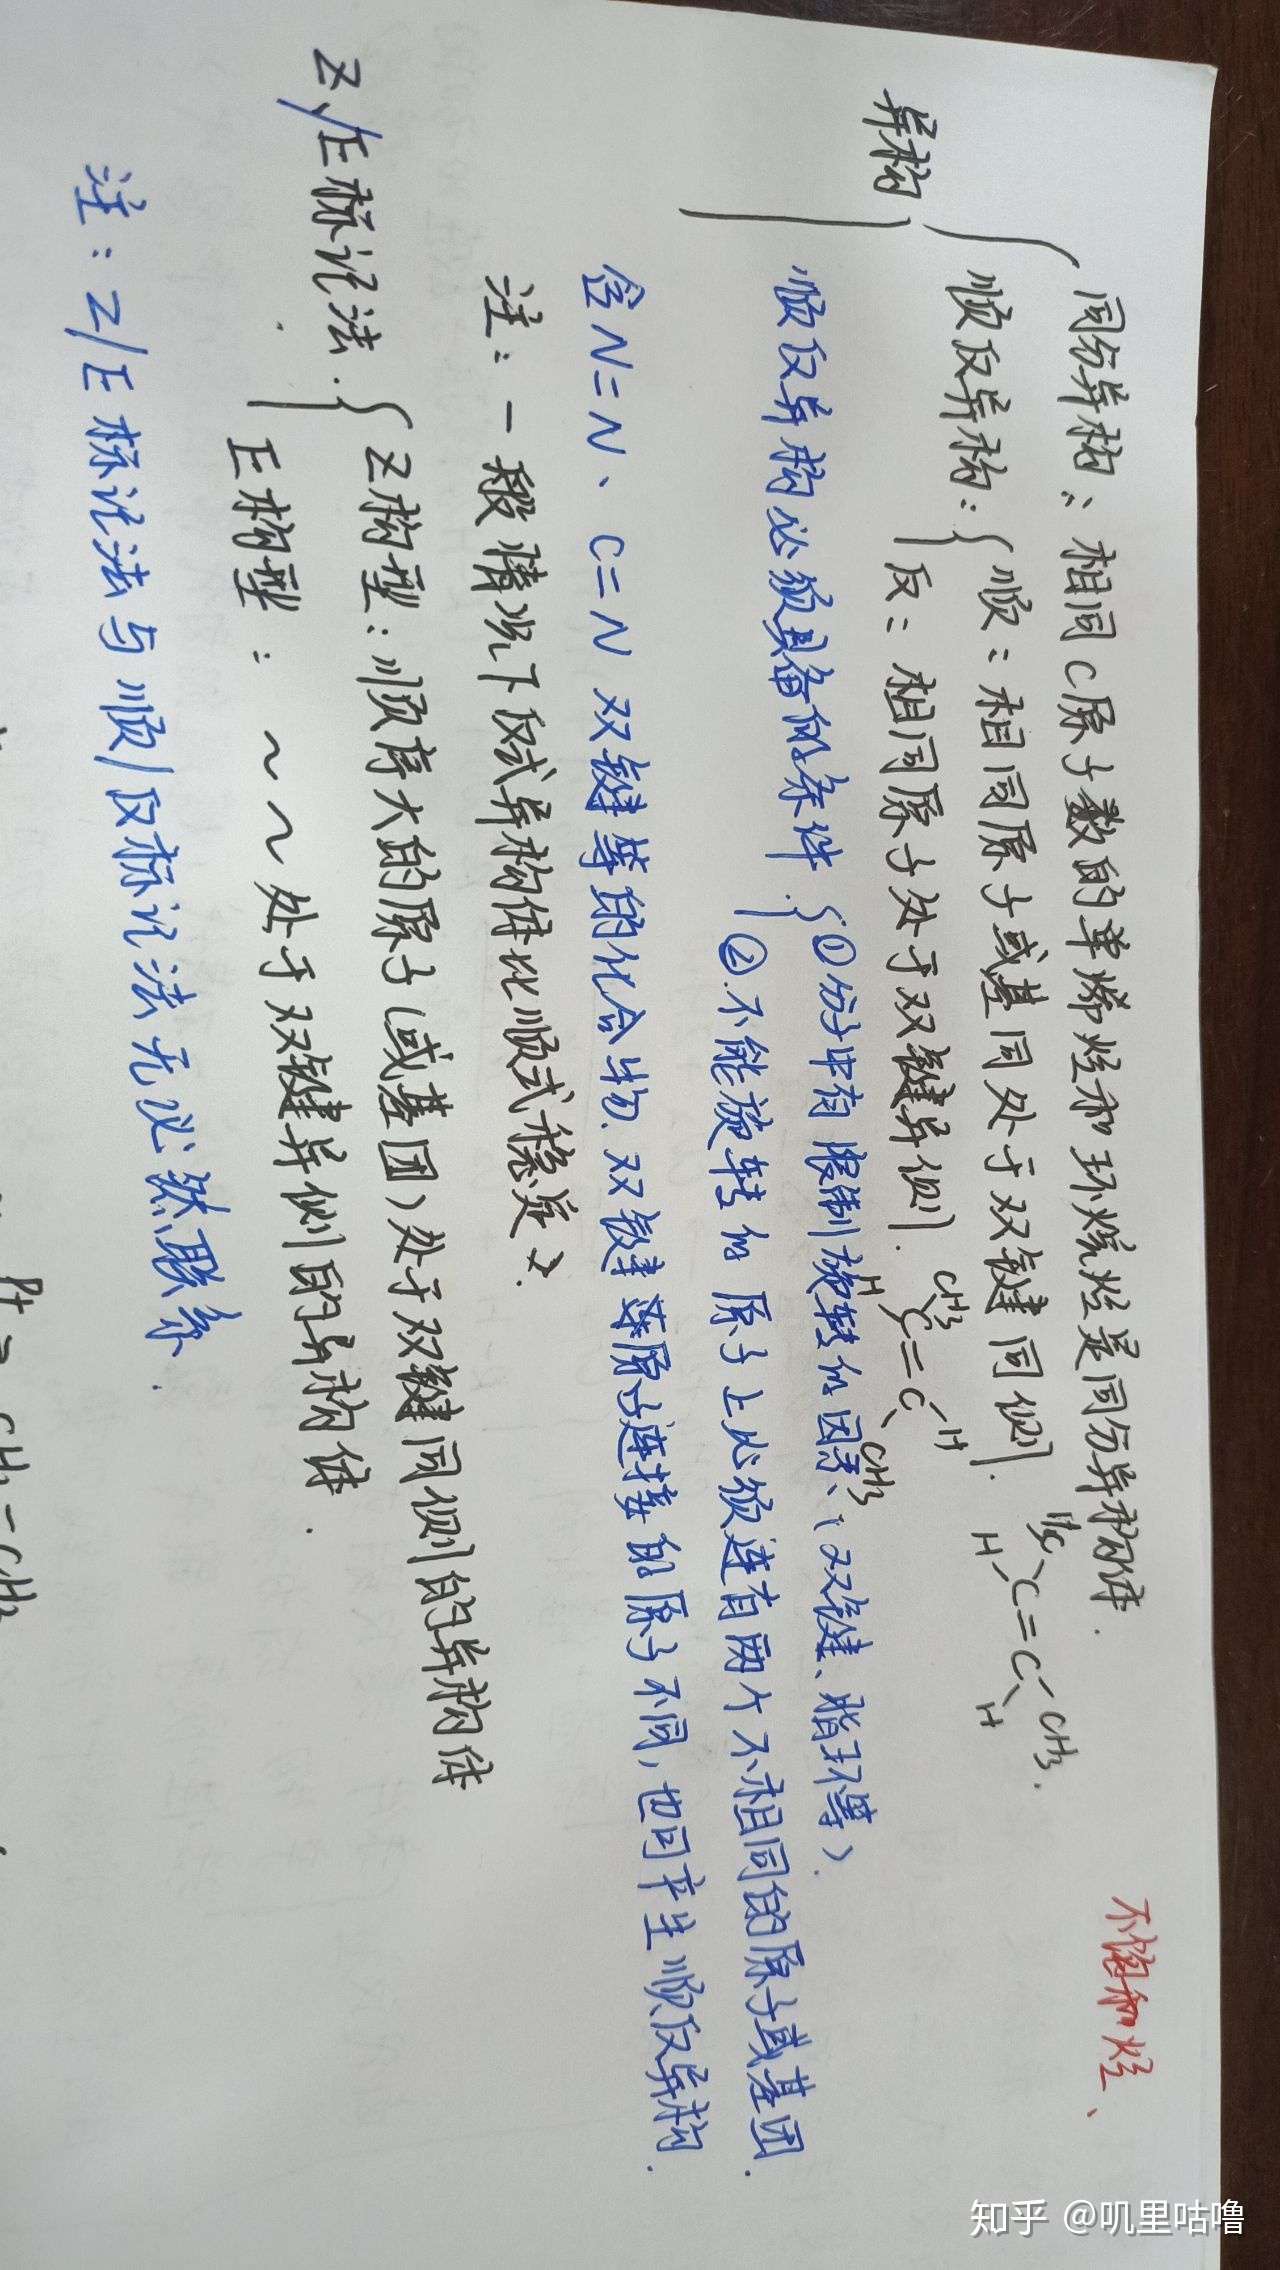 不饱和烃、
异构
同分异构：相同C原子数的单烯烃和环烷烃是同分异构体.
顺反异构：
顺：相同原子或基同处于双键同侧.
H₃C CH₃.
C=C
H H
反：相同原子处于双键异侧.
CH₃ H
C=C
H CH₃
顺反异构必须具备的条件.
①分子中有限制旋转的因素、(双键、脂环等).
②.不能旋转的原子上必须连有两个不相同的原子或基团.
含N=N、C=N双键等的化合物.双键 原子连接的原子不同,也可产生顺反异构.
注：一般情况下反式异构体比顺式稳定.
Z/E标记法.
Z构型：顺序大的原子(或基团)处于双键同侧的异构体
E构型：～～处于双键异侧的异构体.
注：Z/E标记法与顺/反标记法无必然联系.
Pt
CH₂-CH₂
知乎 @叽里咕噜